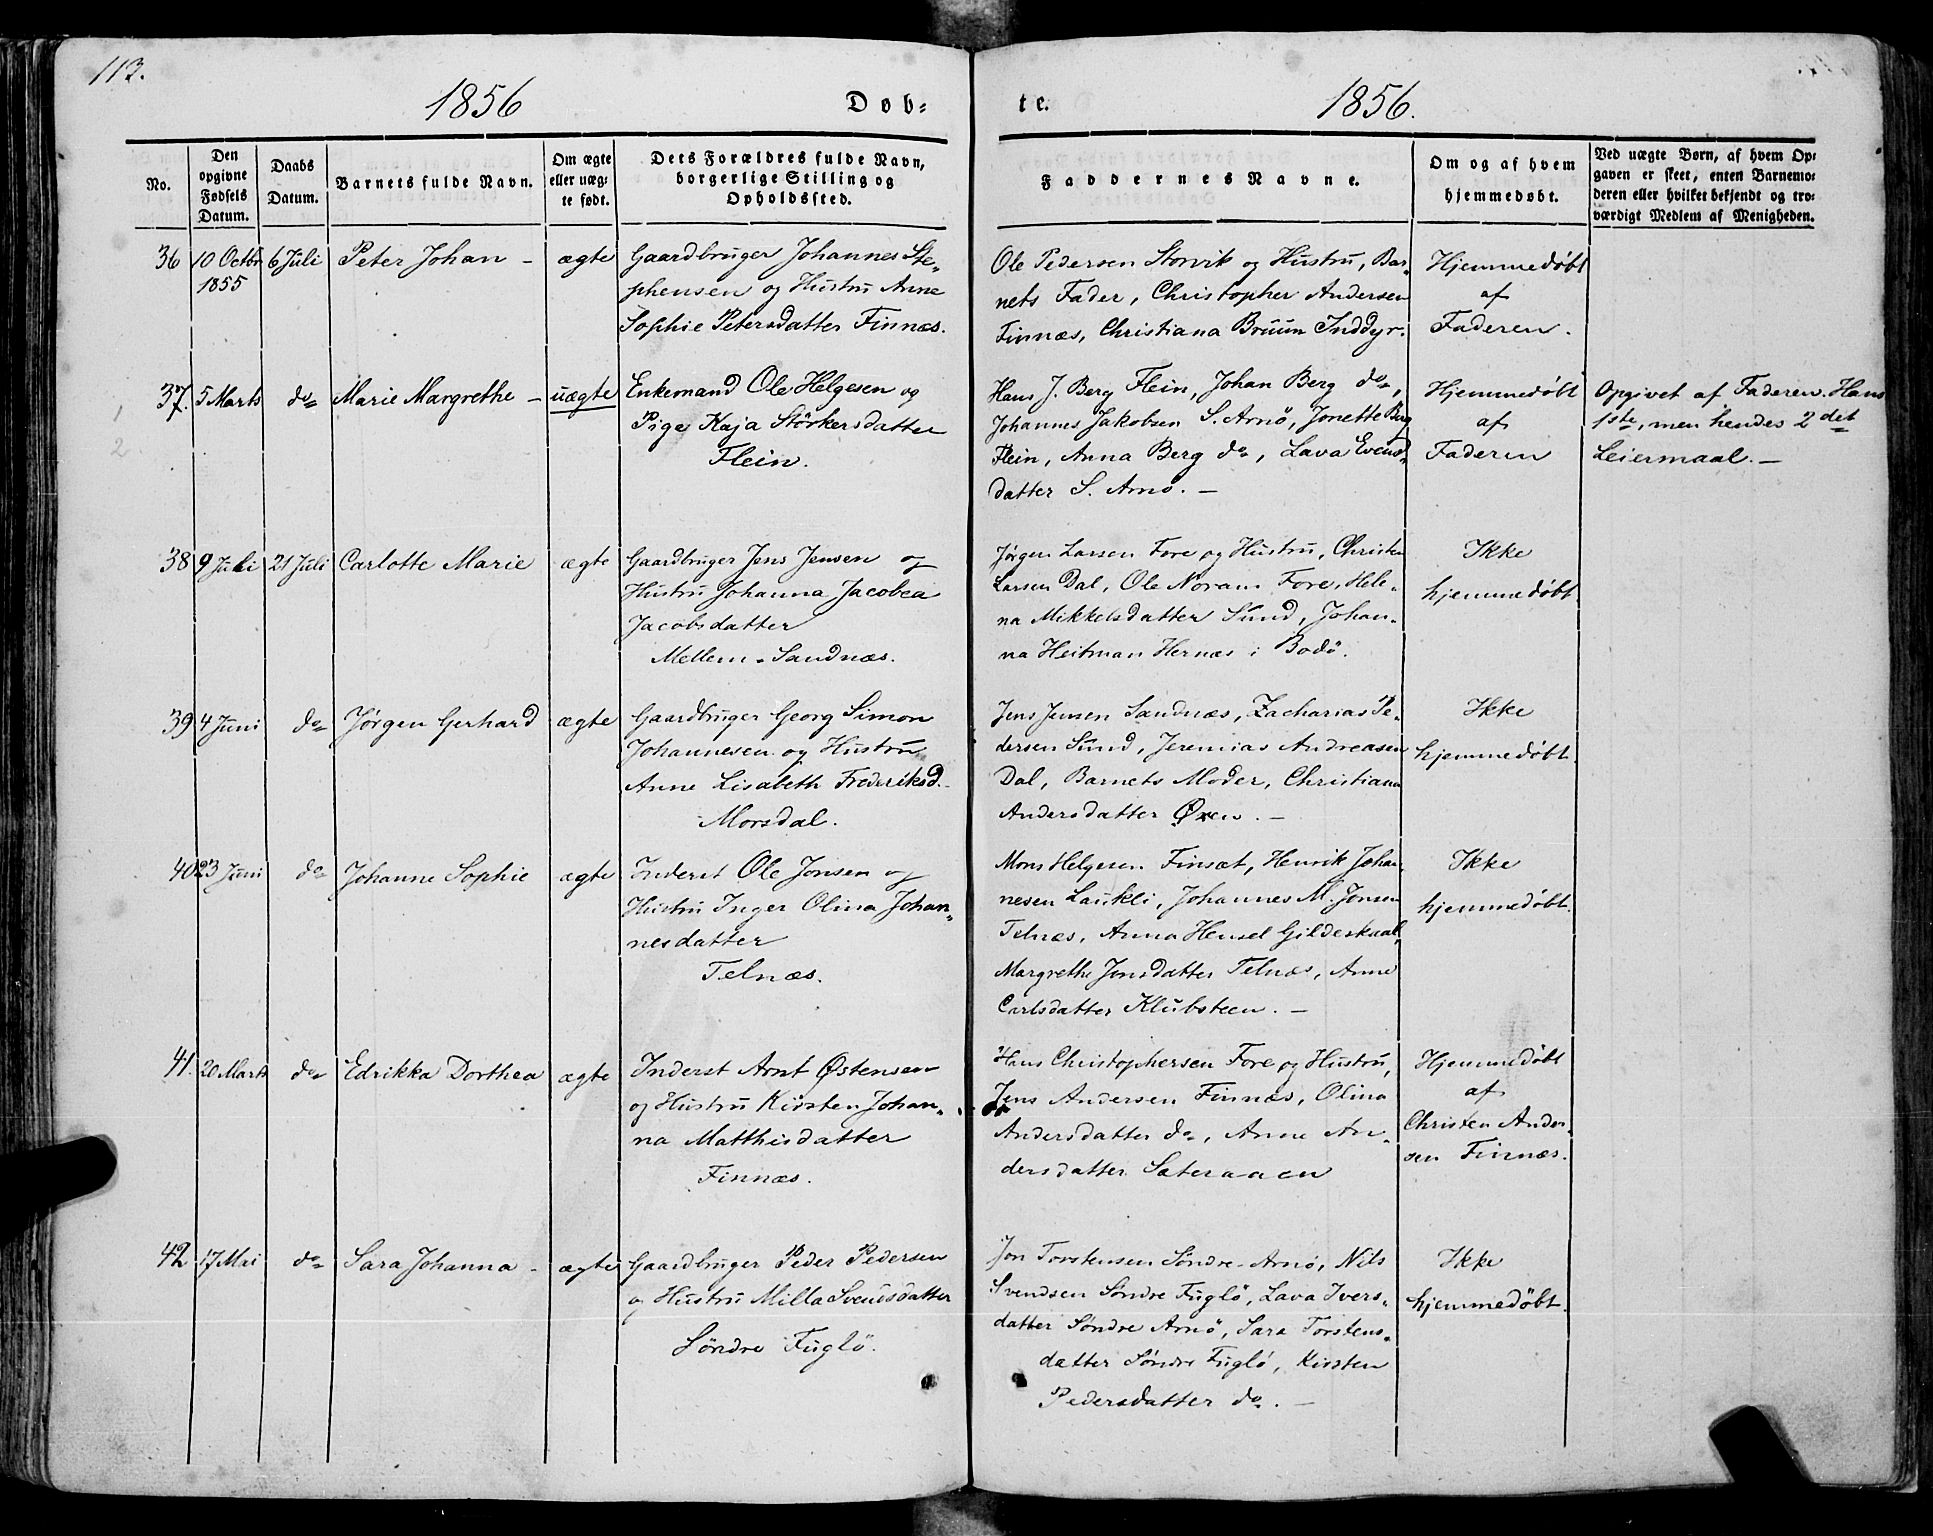 113.
1856
Døb=
te.
1856.
No.
Den opgivne Fødsels Datum.
Daabs Datum.
Barnets fulde Navn.
Om ægte eller uæg= te født.
Dets Forældres fulde Navn, borgerlige Stilling og Opholdssted.
Faddernes Navne.
Om og af hvem hjemmedøbt.
Ved uægte Børn, af hvem Op= gaven er skeet, enten Barnemo= deren eller hvilket bekjendt og tro= værdigt Medlem af Menigheden.
36 10 Octbr 1855 6 Juli Peter Johan - ægte
Gaardbruger Johannes Ste=
phensen og Hustru Anne
Sophie Petersdatter Finnæs.
Ole Pedersen Storvik og Hustru, Bar=
nets Fader, Christopher Andersen
Finnæs, Christiana Bruun Inddyr.
Hjemmedøbt
af
Faderen.
1
2
37. 5 Marts do Marie Margrethe - uægte
Enkemand Ole Helgesen og
Pige Kaja Störkersdatter
Flein.
Hans J. Berg Flein, Johan Berg do,
Johannes Jakobsen S. Arnö, Jonette Berg
Flein, Anna Berg do, Lava Evens=
datter S. Arnö. -
Hjemmedöbt
af
Faderen
Opgivet af Faderen. Hans
1ste, men hendes 2det
Leiermaal. -
38 9 Juli 21 Juli Carlotte Marie ægte
Gaardbruger Jens Jensen og
Hustru Johanna Jacobea
Jacobsdatter
Mellem-Sandnæs.
Jørgen Larsen Fore og Hustru, Christen
Larsen Dal, Ole Noram Fore, Hele=
na Mikkelsdatter Sund, Johan=
na Heitman Hernæs i Bodö.
Ikke
hjemmedöbt
39 4 Juni do Jørgen Gerhard ægte
Gaardbruger Georg Simon
Johannesen og Hustru
Anne Lisabeth Frederiksd.
Morsdal.
Jens Jensen Sandnæs, Zacharias Pe=
dersen Sund, Jeremias Andreasen
Dal, Barnets Moder, Christiana
Andersdatter Øren. -
Ikke
hjemmedøbt
40 23 Juni do Johanne Sophie ægte
Inderst Ole Jonsen og
Hustru Inger Olina Johan=
nesdatter
Telnæs.
Mons Helgesen Finsæt, Henrik Johan=
nesen Laukli, Johannes M. Jonsen
Telnæs, Anna Hensel Gildeskaal,
Margrethe Jonsdatter Telnæs, Anne
Carlsdatter Klubsteen. -
Ikke
hjemmedøbt.
41. 20 Marts do Edrikka Dorthea ægte
Inderst Arnt Østensen
og Hustru Kirsten Johan=
na Matthisdatter
Finnæs.
Hans Christophersen Fore og Hustru,
Jens Andersen Finnæs, Olina
Andersdatter do, Anne An=
dersdatter Sæteraaen
Hjemmedøbt
af
Christen Ander=
sen Finnæs.
42 17 Mai do Sara Johanna - ægte
Gaardbruger Peder Pedersen
og Hustru Milla Svendsdatter
Söndre Fuglö.
Jon Torstensen Söndre-Arnö, Nils
Svendsen Söndre Fuglö, Lava Ivers=
datter Söndre Arnö, Sara Torstens=
datter Söndre Fuglö, Kirsten
Pedersdatter do. -
Ikke
hjemmedøbt.